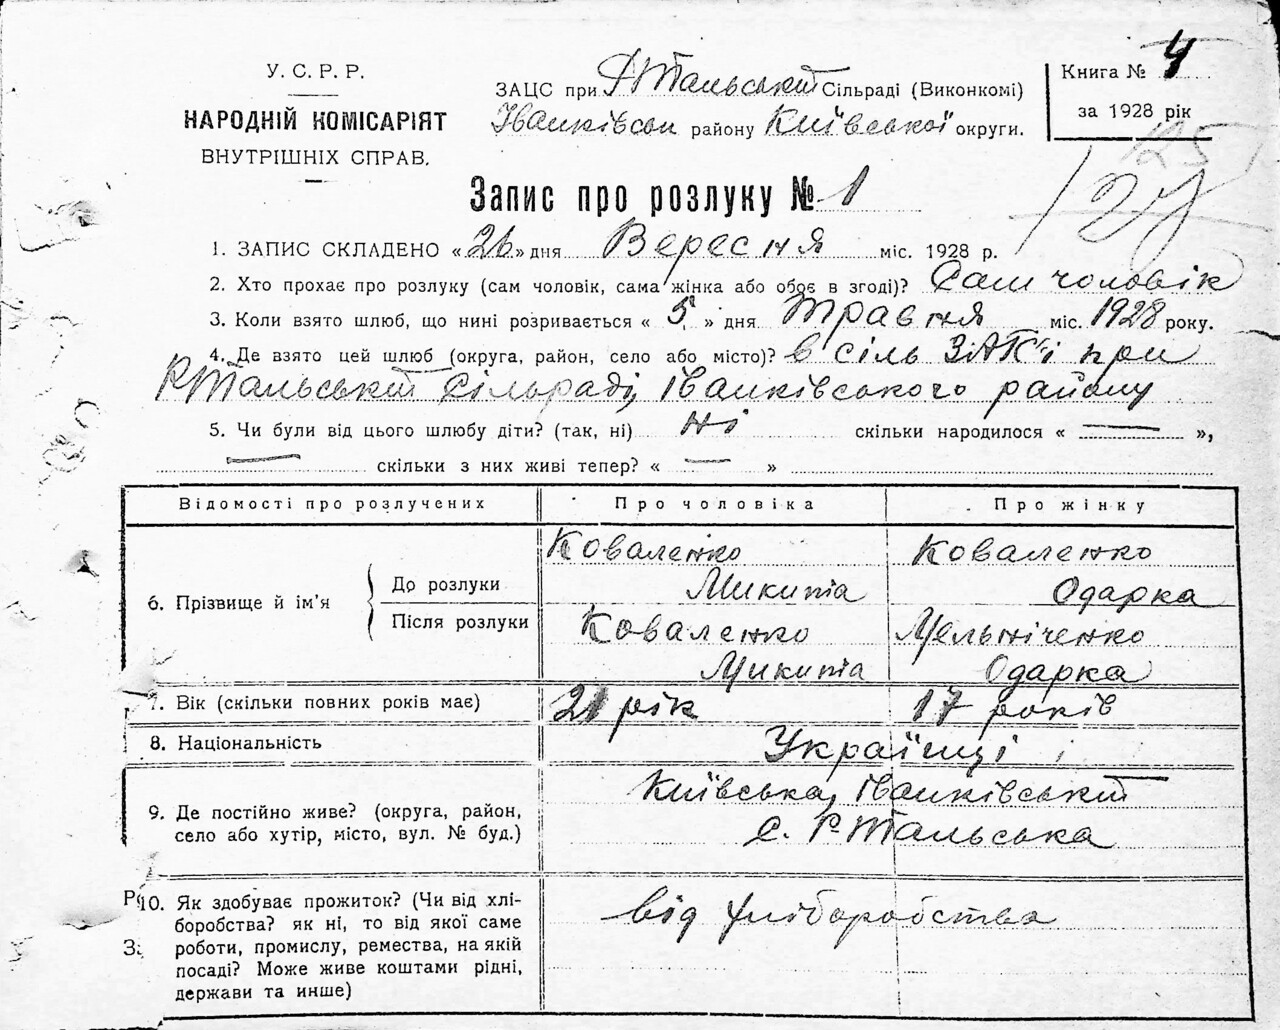 У. С. Р. Р.
НАРОДНІЙ КОМІСАРІЯТ
ВНУТРІШНІХ СПРАВ.
ЗАЦС при Р Тальський Сільраді (Виконкомі)
Іванківськ району Київської округи.
Книга № 4
за 1928 рік
Запис про розлуку № 1
1. ЗАПИС СКЛАДЕНО «26» дня Вересня міс. 1928 р.
2. Хто прохає про розлуку (сам чоловік, сама жінка або обоє в згоді)? Сам чоловік
3. Коли взято шлюб, що нині розривається « 5 » дня Травня міс. 1928 року.
4. Де взято цей шлюб (округа, район, село або місто)? в сіль ЗАГСі при
Р Тальський Сільраді, Іванківського району
5. Чи були від цього шлюбу діти? (так, ні) ні скільки народилося « — »,
— скільки з них живі тепер? « — »
Відомості про розлучених Про чоловіка Про жінку
6. Прізвище й ім'я До розлуки Коваленко Микита Коваленко Одарка
Після розлуки Коваленко Микита Мельніченко Одарка
7. Вік (скільки повних років має) 21 рік 17 років
8. Національність Українці
9. Де постійно живе? (округа, район, Київська, Іванківський
село або хутір, місто, вул. № буд.) с. Р. Тальська
10. Як здобуває прожиток? (Чи від хлі- від хліборобства
боробства? як ні, то від якої саме
роботи, промислу, ремества, на якій
посаді? Може живе коштами рідні,
держави та инше)